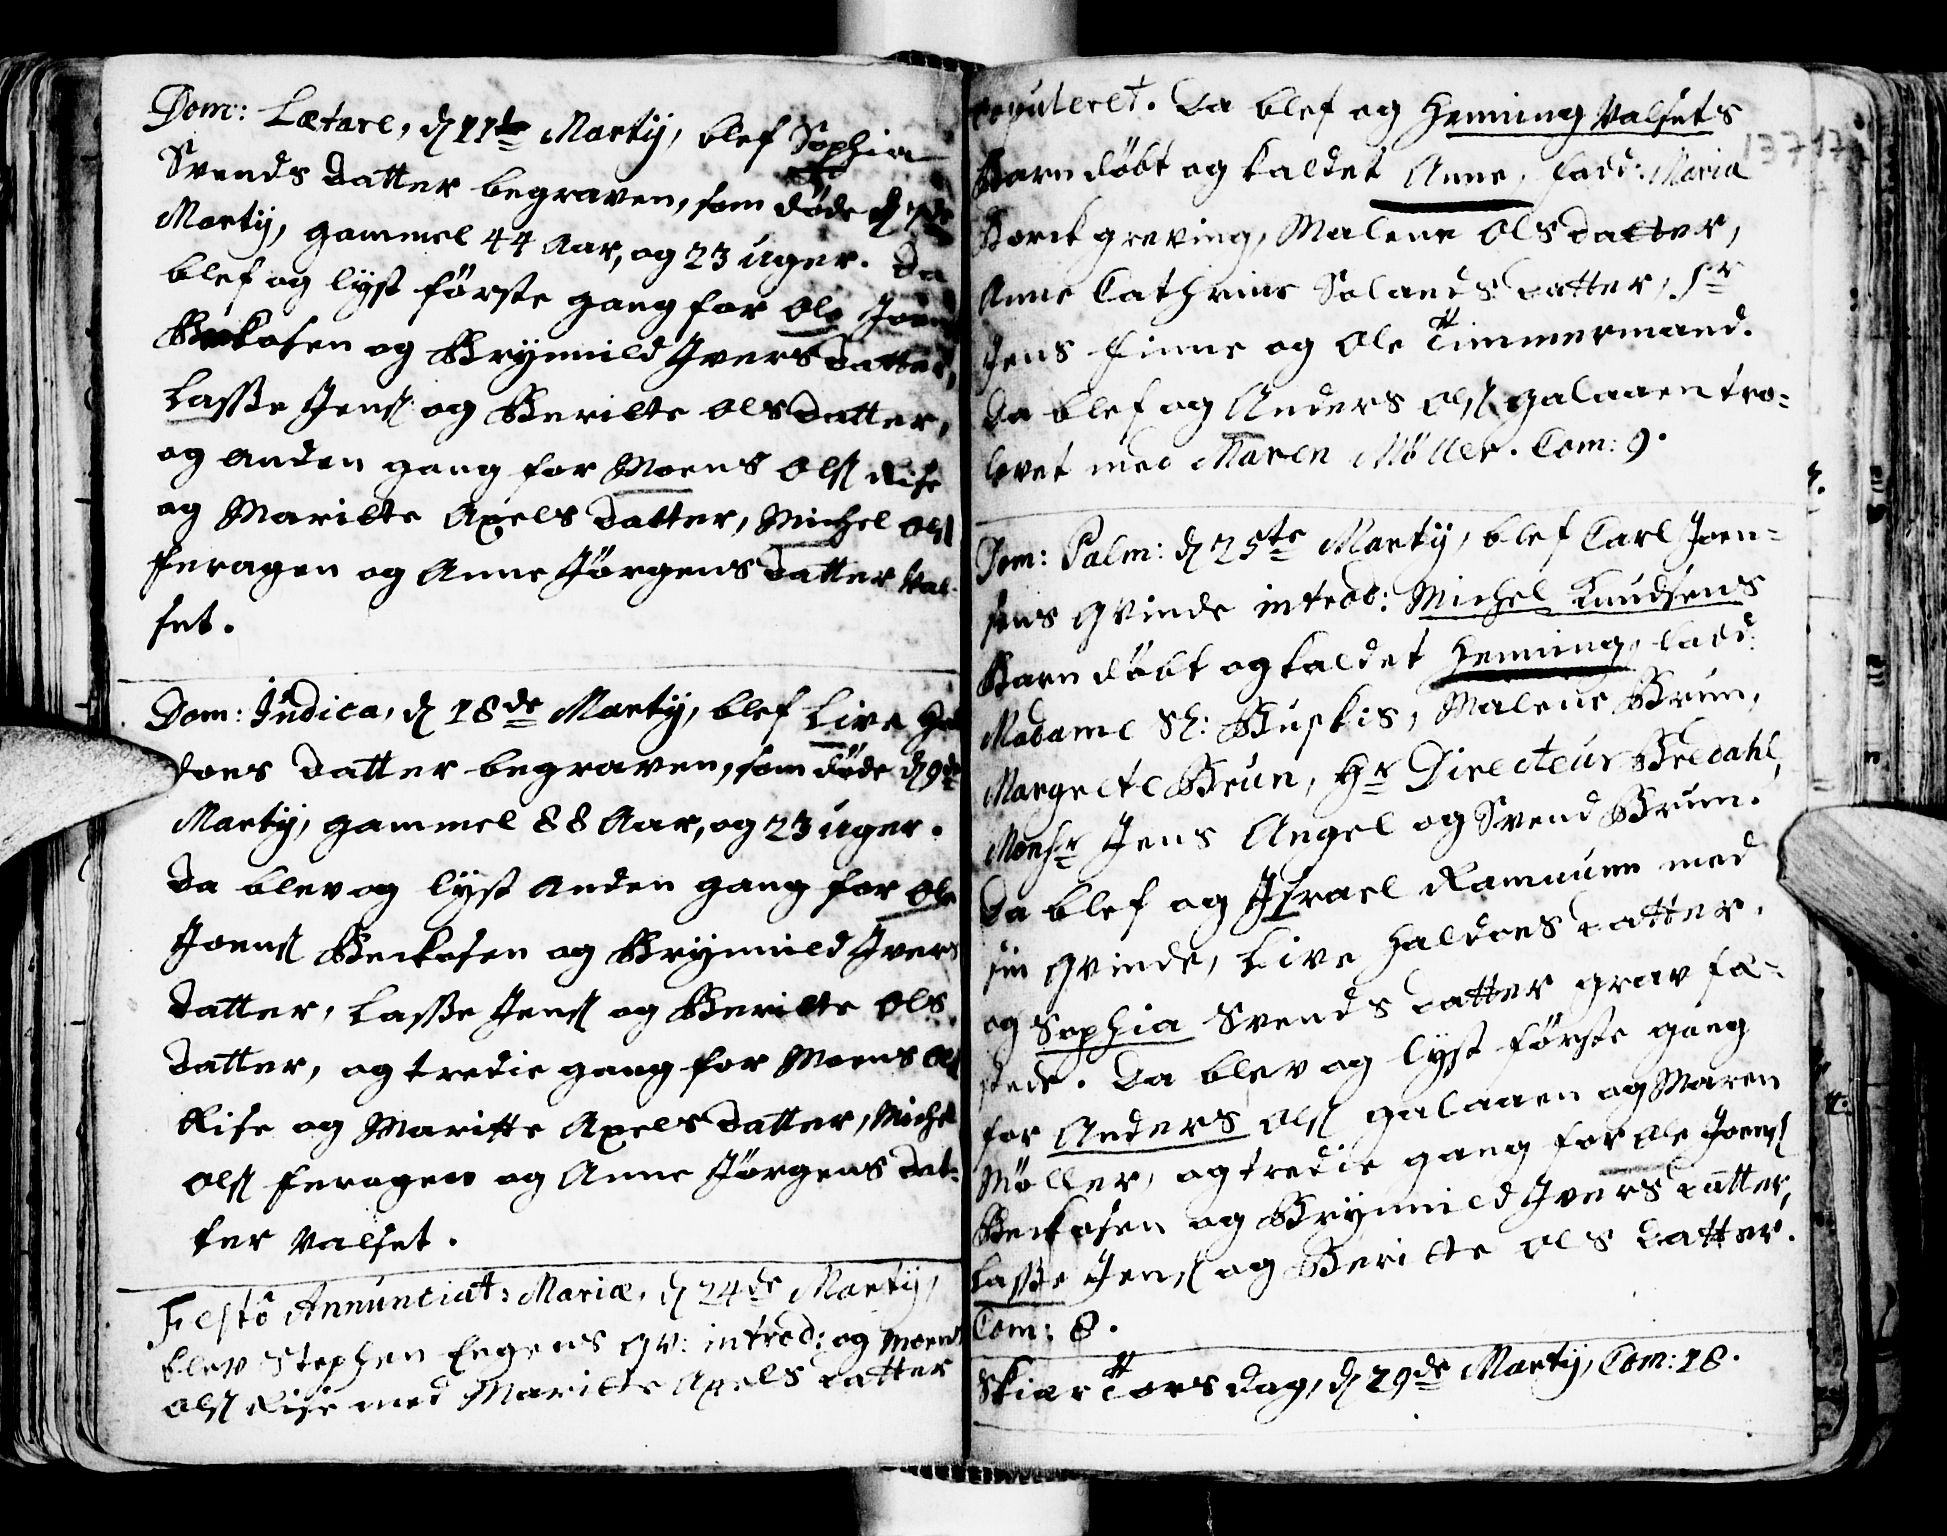 Dom: Lætare, d 11te Martij, blef Sophia
Svends datter begraven, som døde d 7de
Martij, gammel 44 Aar, og 23 uger. Da
blef og lyst første gang for Ole Joens
Beckosen og Brynnild Ivers datter,
Lasse Jens og Beritte Ols datter,
og anden gang for Moens Ols Rise
og Maritte Axels datter, Michel Ols
Feragen og Anne Jørgens datter Val-
set.
Dom: Judica, d 18de Martij, blef Live Hal
does datter begraven, som døde d 9de
Martij, gammel 88 Aar, og 23 uger.
Da blev og lyst Anden gang for Ole
Joens Beckosen og Brynnild Ivers
datter, Lasse Jens og Beritte Ols
datter, og tredie gang for Moens Ols
Rise og Maritte Axels datter, Michel
Ols Feragen og Anne Jørgens dat-
ter Valset.
Festo Annunciat: Mariæ, d 24de Martij,
blev Stephen Engens qv: introd: og Moens
Ols Rise med Maritte Axels datter
copuleret. Da blef og Henning Valsets
Barn døbt og kaldet Anne, fadd: Maria
Borchgreving, Malene Ols datter,
Anne Cathrine Solands datter, Sr
Jens Finne og Ole Timmermand.
Da blef og Anders Ols Galaaen tro-
lovet med Maren Møller. Com: 9.
Dom: Palm: d 25te Martij, blef Carl Joen-
sens Qvinde introd: Michel Knudsens
Barn døbt og kaldet Henning, fadd:
Madame Sl: Buskis, Malene Brun,
Margrete Brun, Hr Directeur Bredahl,
Monsr Jens Angel og Svend Brun.
Da blef og Israel Ramuun med
sin Qvinde, Live Haldoes datter,
og Sophia Svends datter grav fæ-
stede. Da blev og lyst første gang
for Anders Ols Galaaen og Maren
Møller, og tredie gang for Ole Joens
Beckosen og Brynnild Ivers datter,
Lasse Jens og Beritte Ols datter.
Com: 8.
Skiær Torsdag, d 29de Martij, Com: 18.